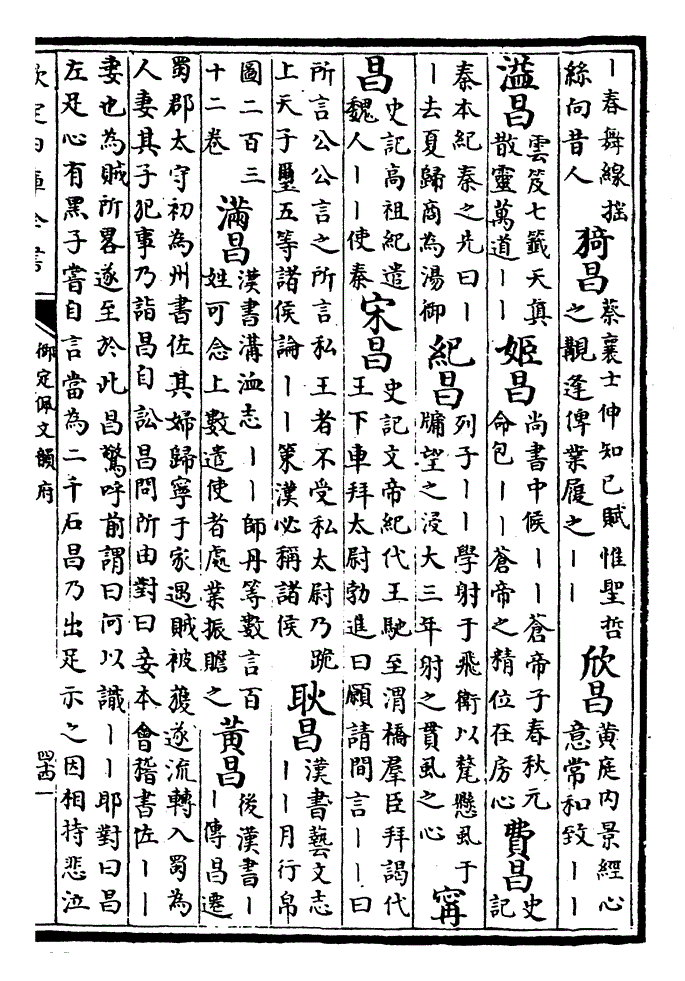 ｜春舞線拖
絲向昔人
猗昌
蔡襄士仲知已賦惟聖哲
之觀逢俾業履之｜｜
欣昌
黃庭内景經心
意常和致｜｜
溢昌
雲笈七籖天真
散靈萬道｜｜
姬昌
尚書中候｜｜蒼帝子春秋元
命包｜｜蒼帝之精位在房心
費昌
史
記
秦本紀秦之先曰｜
｜去夏歸商為湯御
紀昌
列子｜｜學射于飛衛以氂懸虱于
牖望之浸大三年射之貫虱之心
甯
昌
史記高祖紀遣
魏人｜｜使秦
宋昌
史記文帝紀代王馳至渭橋羣臣拜謁代
王下車拜太尉勃進曰願請間言｜｜曰
所言公公言之所言私王者不受私太尉乃跪
上天子璽五等諸侯論｜｜策漢必稱諸侯
耿昌
漢書藝文志
｜｜月行帛
圖二百三
十二卷
滿昌
漢書溝洫志｜｜師丹等數言百
姓可念上數遣使者處業振贍之
黃昌
後漢書｜
｜傳昌遷
蜀郡太守初為州書佐其婦歸寧于家遇賊被獲遂流轉入蜀為
人妻其子犯事乃詣昌自訟昌問所由對曰妾本會稽書佐｜｜
妻也為賊所畧遂至於此昌驚呼前謂曰何以識｜｜耶對曰昌
左足心有黑子嘗自言當為二千石昌乃出足示之因相持悲泣
欽定四庫全書
御定佩文韻府